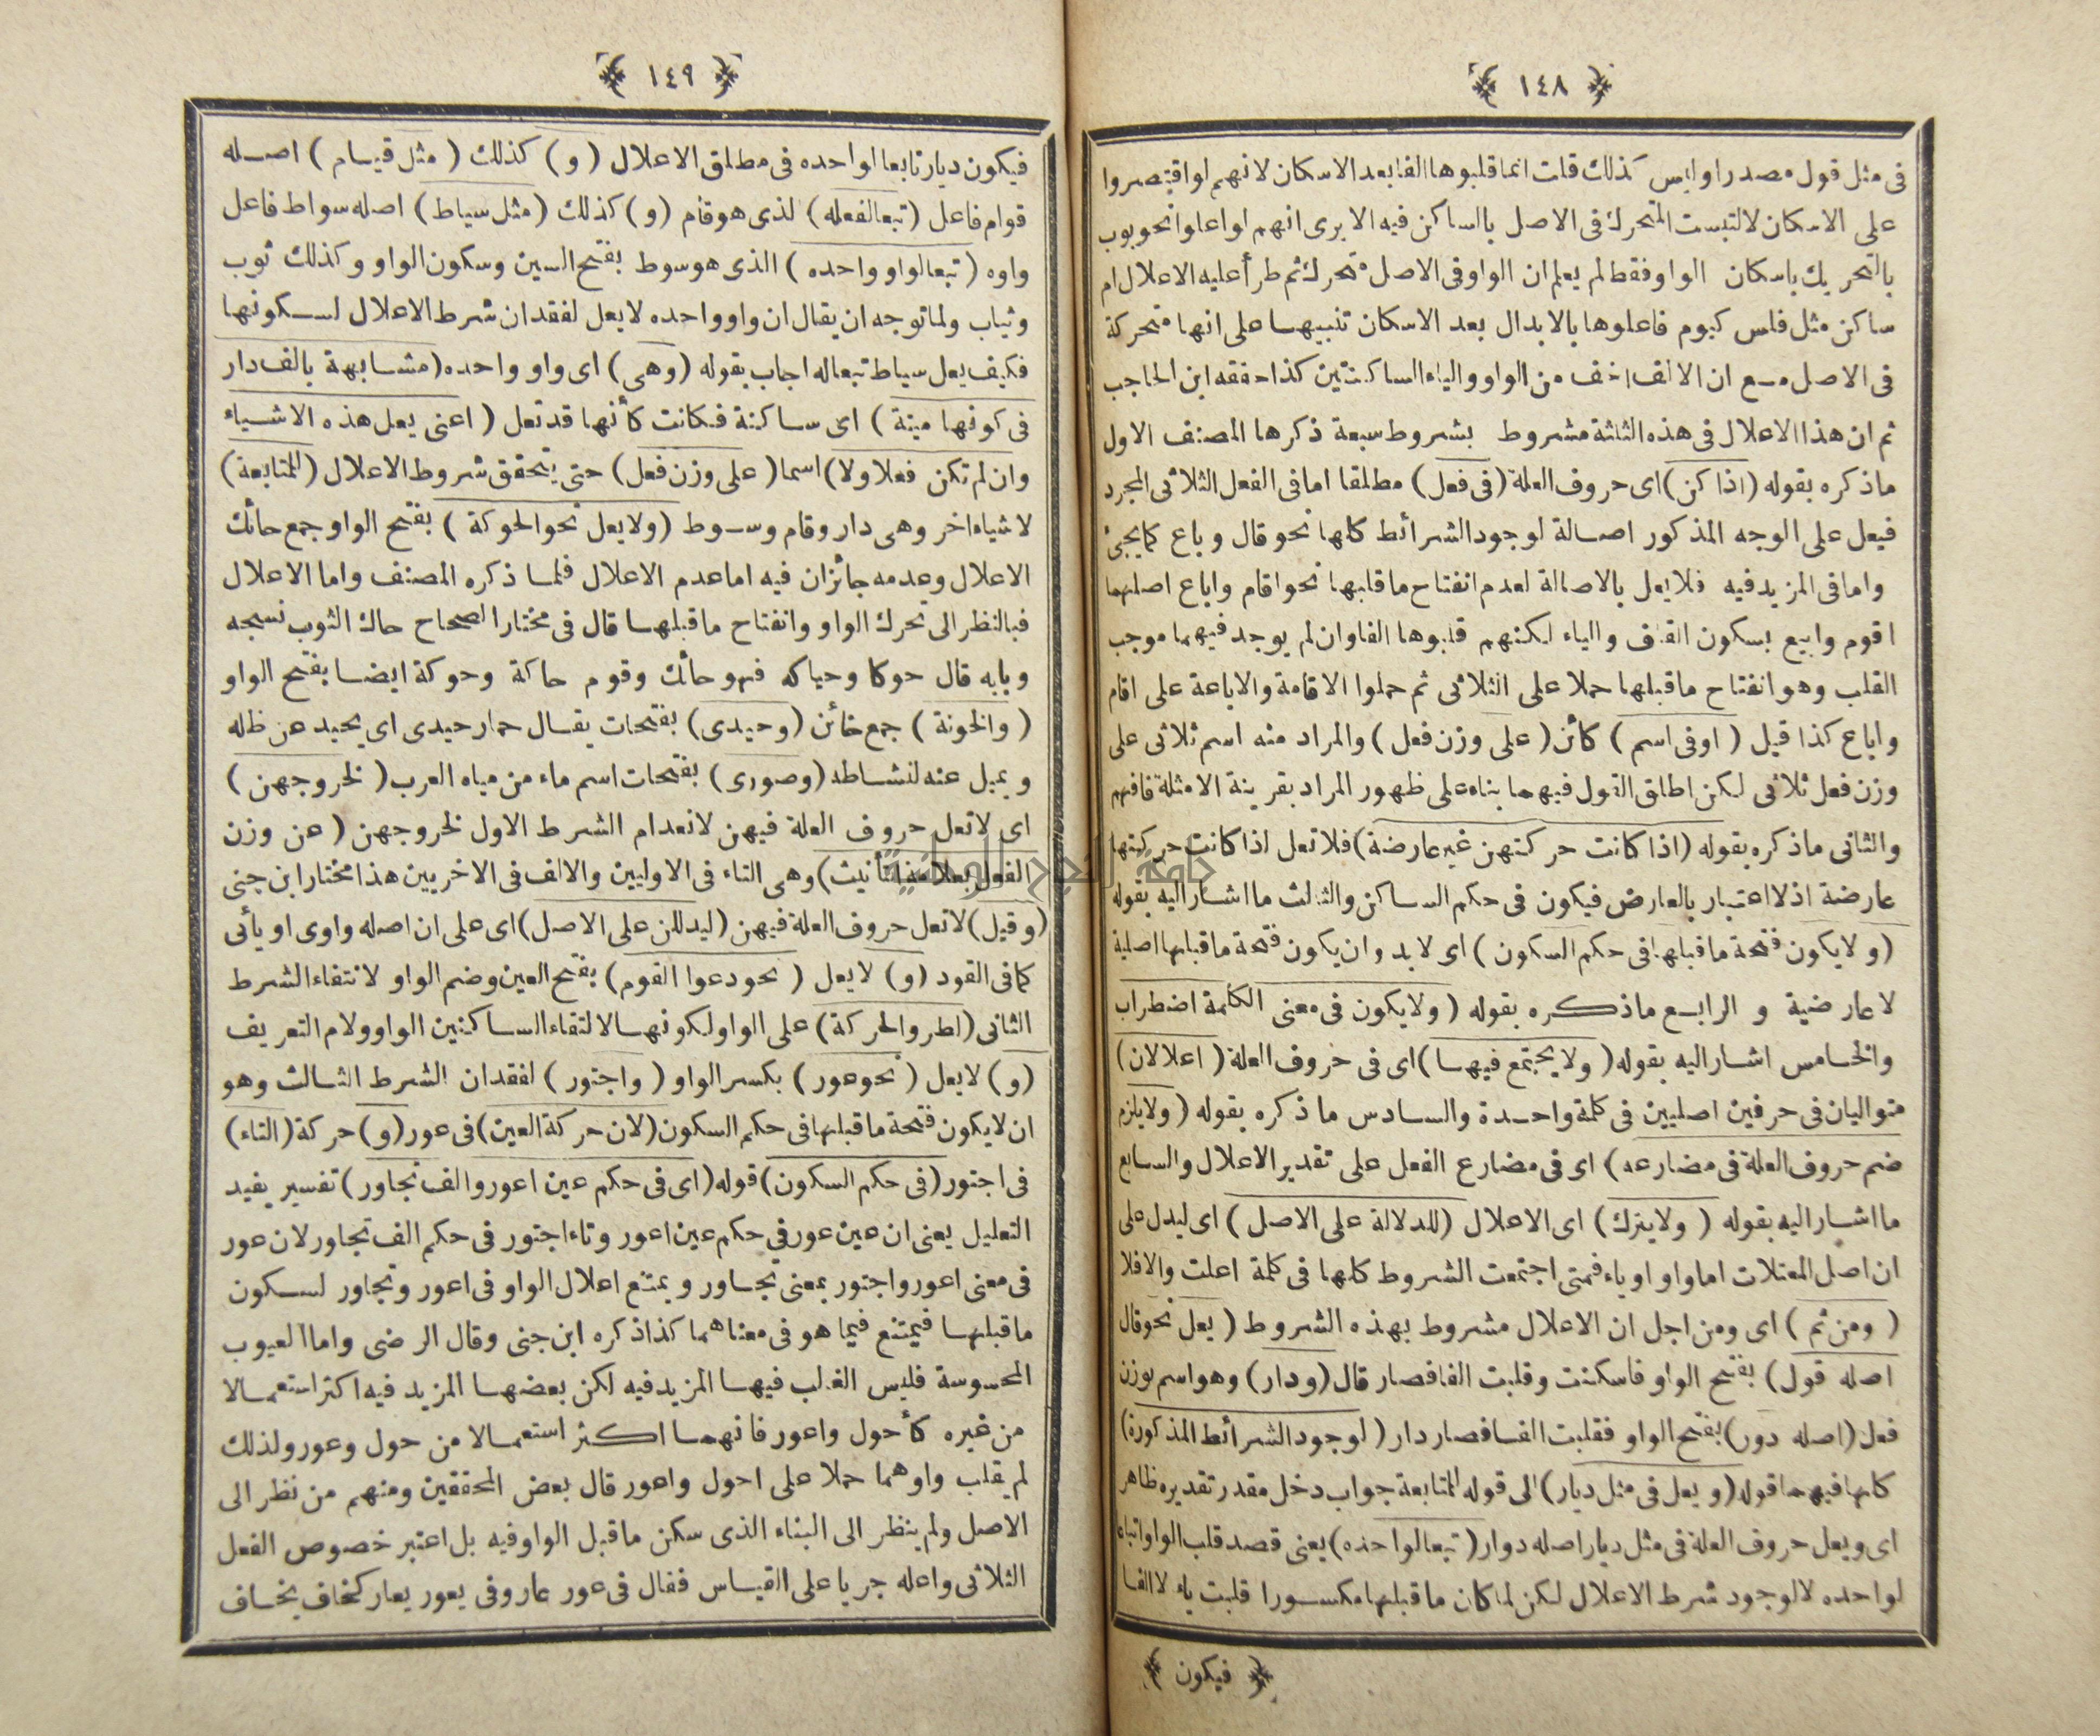 ﴿ ١٤٨ ﴾
فى مثل قول مصدرا وليس كذلك قلت انما قلبوها الفا بعد الاسكان لانهم لو اقتصروا
على الاسكان لالتبست المتحرك فى الاصل بالساكن فيه الا يرى انهم لو اعلوا نحو بوب
بالتحريك باسكان الواو فقط لم يعلم ان الواو فى الاصل متحرك ثم طرأ عليه الاعلال ام
ساكن مثل فلس كيوم فاعلوها بالابدال بعد الاسكان تنبيها على انها متحركة
فى الاصل مع ان الالف اخف من الواو والياء الساكنتين كذا حققه ابن الحاجب
ثم ان هذا الاعلال فى هذه الثلثة مشروط بشروط سبعة ذكرها المصنف الاول
ما ذكره بقوله (اذا كن) اى حروف العلة (فى فعل) مطلقا اما فى الفعل الثلاثى المجرد
فيعل على الوجه المذكور اصالة لوجود الشرائط كلها نحو قال وباع كما يجئ
واما فى المزيد فيه فلا يعل بالاصالة لعدم انفتاح ما قبلها نحو اقام واباع اصلهما
اقوم وابيع بسكون القاف والياء لكنهم قلبوها الفا وان لم يوجد فيهما موجب
القلب وهو انفتاح ما قبلها حملا على الثلاثى ثم حملوا الاقامة والاباعة على اقام
واباع كذا قيل (او فى اسم) كائن (على وزن فعل) والمراد منه اسم ثلاثى على
وزن فعل ثلاثى لكن اطلق القول فيهما بناء على ظهور المراد بقرينة الامثلة فافهم
والثانى ما ذكره بقوله (اذا كانت حركتهن غير عارضة) فلا تعل اذا كانت حركتها
عارضة اذ لا اعتبار بالعارض فيكون فى حكم الساكن والثالث ما اشار اليه بقوله
(ولا يكون فتحة ما قبلها فى حكم السكون) اى لا بد وان يكون فتحة ما قبلها اصلية
لا عارضية و الرابع ما ذكره بقوله (ولا يكون فى معنى الكلمة اضطراب
والخامس اشار اليه بقوله (ولا يجتمع فيها) اى فى حروف العلة (اعلالان)
متواليان فى حرفين اصليين فى كلمة واحدة والسادس ما ذكره بقوله (ولا يلزم
ضم حروف العلة فى مضارعه) اى فى مضارع الفعل على تقدير الاعلال والسابع
ما اشار اليه بقوله (ولا يترك) اى الاعلال (للدلالة على الاصل) اى ليدل على
ان اصل المعتلات اما واو او ياء فمتى اجتمعت الشروط كلها فى كلمة اعلت والا فلا
(ومن ثم) اى ومن اجل ان الاعلال مشروط بهذه الشروط (يعل نحو قال
اصله قول) بفتح الواو فاسكنت وقلبت الفا فصار قال (ودار) وهو اسم بوزن
فعل (اصله دور) بفتح الواو فقلبت الفا فصار دار (لوجود الشرائط المذكورة)
كلها فيهما قوله (ويعل فى مثل ديار) الى قوله للمتابعة جواب دخل مقدر تقديره ظاهر
اى ويعل حروف العلة فى مثل ديار اصله دوار (تبعا لواحده) يعنى قصد قلب الواو اتباعا
لواحده لا لوجود شرط الاعلال لكن لما كان ما قبلها مكسورا قلبت ياء لا الفا
﴿ فيكون ﴾
﴿ ١٤٩ ﴾
فيكون ديار تابعا لواحده فى مطلق الاعلال (و) كذلك (مثل قيام) اصله
قوام فاعل (تبعا لفعله) لذى هو قام (و) كذلك (مثل سياط) اصله سواط فاعل
واوه (تبعا لواو واحده) الذى هو سوط بفتح السين وسكون الواو وكذلك ثوب
وثياب ولما توجه ان يقال ان واو واحده لا يعل لفقدان شرط الاعلال لسكونها
فكيف يعل سياط تبعا له اجاب بقوله (وهى) اى واو واحده (مشابهة بالف دار
فى كونها ميتة) اى ساكنة فكانت كأنها قد تعل (اعنى يعل هذه الاشياء
وان لم تكن فعلا ولا) اسما (على وزن فعل) حتى يتحقق شروط الاعلال (للمتابعة)
لاشياء اخر وهى دار وقام وسوط (ولا يعل نحو الحوكة) بفتح الواو جمع حائك
الاعلال وعدمه جائزان فيه اما عدم الاعلال فلما ذكره المصنف واما الاعلال
فبالنظر الى تحرك الواو وانفتاح ما قبلها قال فى مختار الصحاح حاك الثوب نسجه
وبابه قال حوكا وحياكه فهو حائك وقوم حاكة وحوكة ايضا بفتح الواو
(والخونة) جمع خائن (وحيدى) بفتحات يقال حمار حيدى اى يحيد عن ظله
ويميل عنه لنشاطه (وصورى) بفتحات اسم ماء من مياه العرب (لخروجهن)
اى لا تعل حروف العلة فيهن لانعدام الشرط الاول لخروجهن (عن وزن
الفعل بعلامة التأنيث) وهى التاء فى الاوليين والالف فى الاخريين هذا مختار ابن جنى
(وقيل) لا تعل حروف العلة فيهن (ليدللن على الاصل) اى على ان اصله واوى او يأئى
كما فى القود (و) لا يعل (نحو دعوا القوم) بفتح العين وضم الواو لانتفاء الشرط
الثانى (لطرو الحركة) على الواو لكونها لالتقاء الساكنين الواو ولام التعريف
(و) لا يعل (نحو عور) بكسر الواو (واجتور) لفقدان الشرط الثالث وهو
ان لا يكون فتحة ما قبلها فى حكم السكون (لان حركة العين) فى عور (و) حركة (التاء)
فى اجتور (فى حكم السكون) قوله (اى فى حكم عين اعور والف تجاور) تفسير يفيد
التعليل يعنى ان عين عور فى حكم عين اعور وتاء اجتور فى حكم الف تجاور لان عور
فى معنى اعور واجتور بمعنى تجاور ويمتنع اعلال الواو فى اعور وتجاور لسكون
ما قبلها فيمتنع فيما هو فى معناهما كذا ذكره ابن جنى وقال الرضى واما العيوب
المحسوسة فليس الغالب فيها المزيد فيه لكن بعضها المزيد فيه اكثر استعمالا
من غيره كأحول واعور فانهما اكثر استعمالا من حول وعور ولذلك
لم يقلب واوهما حملا على احول واعور قال بعض المحققين ومنهم من نظر الى
الاصل ولم ينظر الى البناء الذى سكن ما قبل الواو فيه بل اعتبر خصوص الفعل
الثلاثى واعله جريا على القياس فقال فى عور عار وفى يعور يعار كخاف يخاف